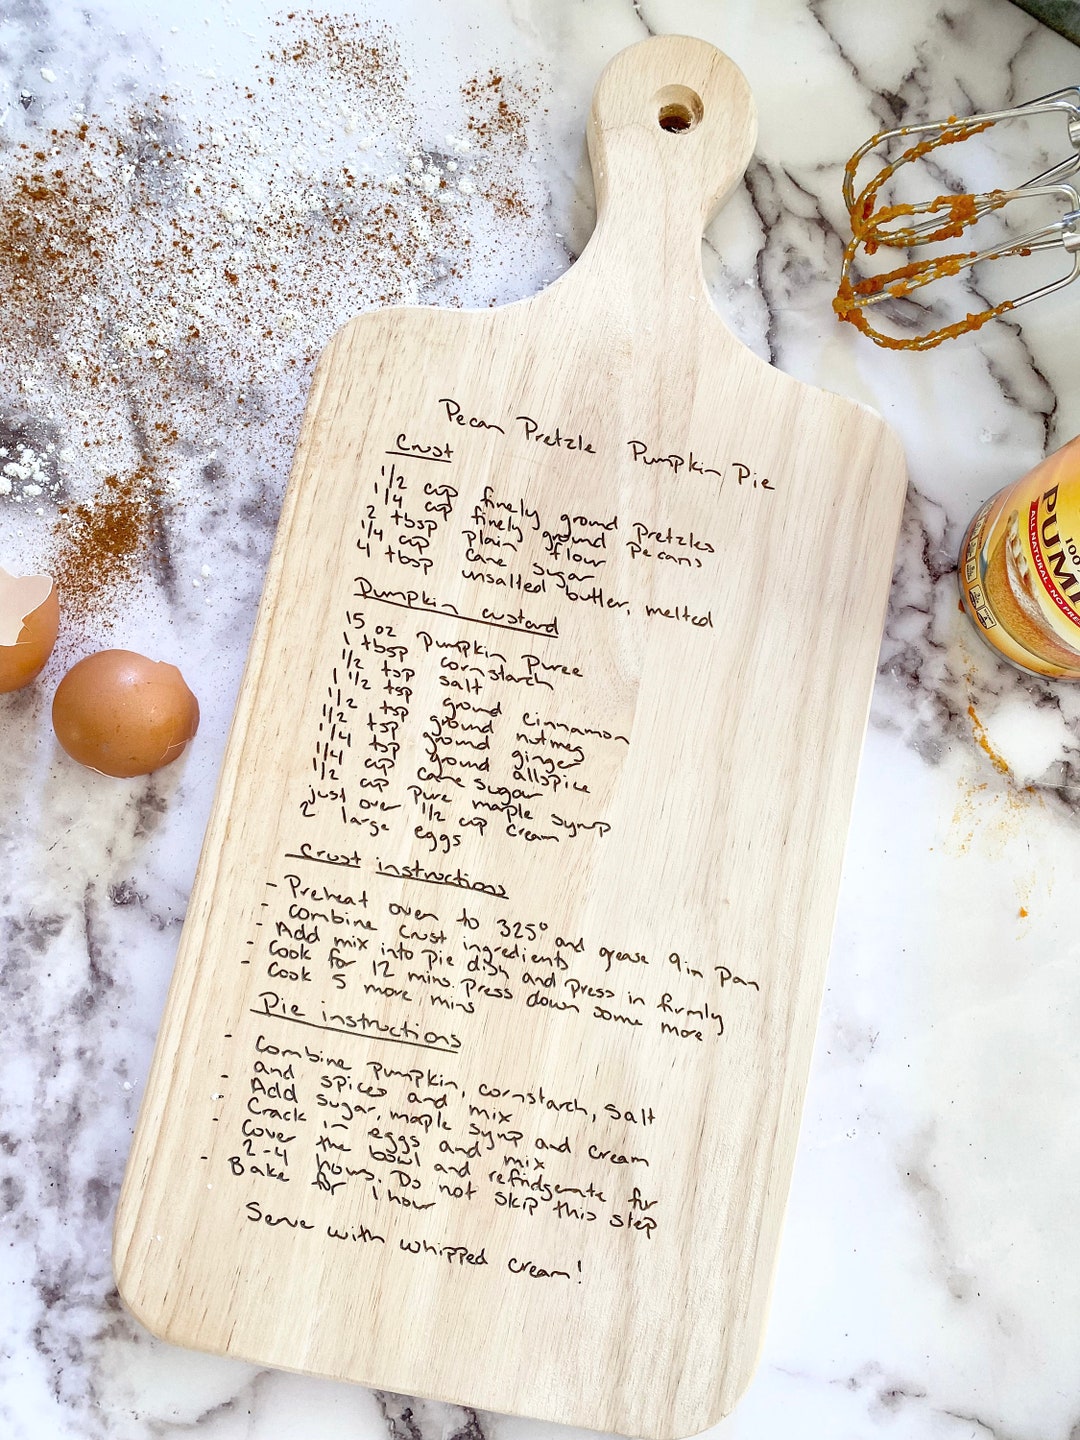 Pecan Pretzle Pumpkin Pie
Crust
1/2 cup finely ground Pretzles
1/4 cup finely ground Pecans
2 tbsp plain flour
1/4 cup cane sugar
4 tbsp unsalted butter, melted
Pumpkin custard
15 oz Pumpkin Puree
1 tbsp cornstarch
1/2 tsp salt
1 1/2 tsp ground cinnamon
1/2 tsp ground nutmeg
1/2 tsp ground ginger
1/4 tsp ground allspice
1/4 cup cane sugar
1/2 cup Pure maple syrup
just over 1/2 cup cream
2 large eggs
Crust instructions
- Preheat oven to 325° and grease 9in Pan
- Combine Crust ingredients
- Add mix into Pie dish and Press in firmly
- Cook for 12 mins. Press down some more
- Cook 5 more mins
Pie instructions
- Combine Pumpkin, cornstarch, salt
and spices and mix
- Add sugar, maple syrup and cream
- Crack in eggs and mix
- Cover the bowl and refridgerate for
2-4 hours. Do not skip this step
- Bake for 1 hour
Serve with whipped cream!
100
PUM
ALL NATURAL · NO PRE